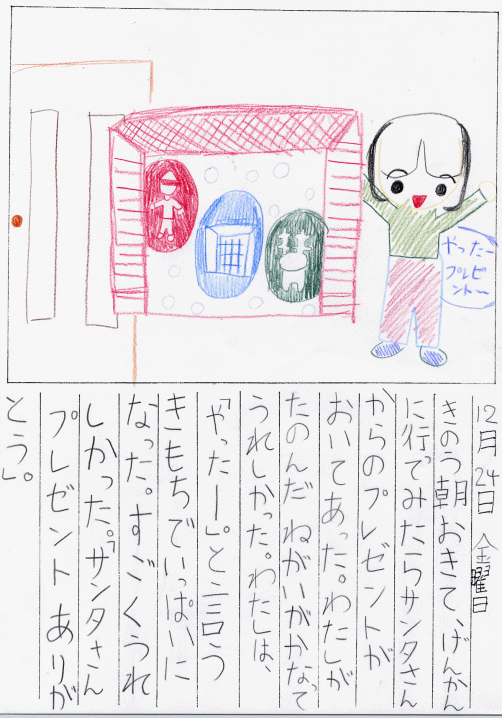 やったー
プレゼ
ント〜
12月24日 金曜日
きのう朝おきて、げんかん
に行ってみたらサンタさん
からのプレゼントが
おいてあった。わたしが
たのんだ ねがいがかなって
うれしかった。わたしは、
「やったー」。と言う
きもちでいっぱいに
なった。すごくうれ
しかった。「サンタさん
プレゼント ありが
とう」。